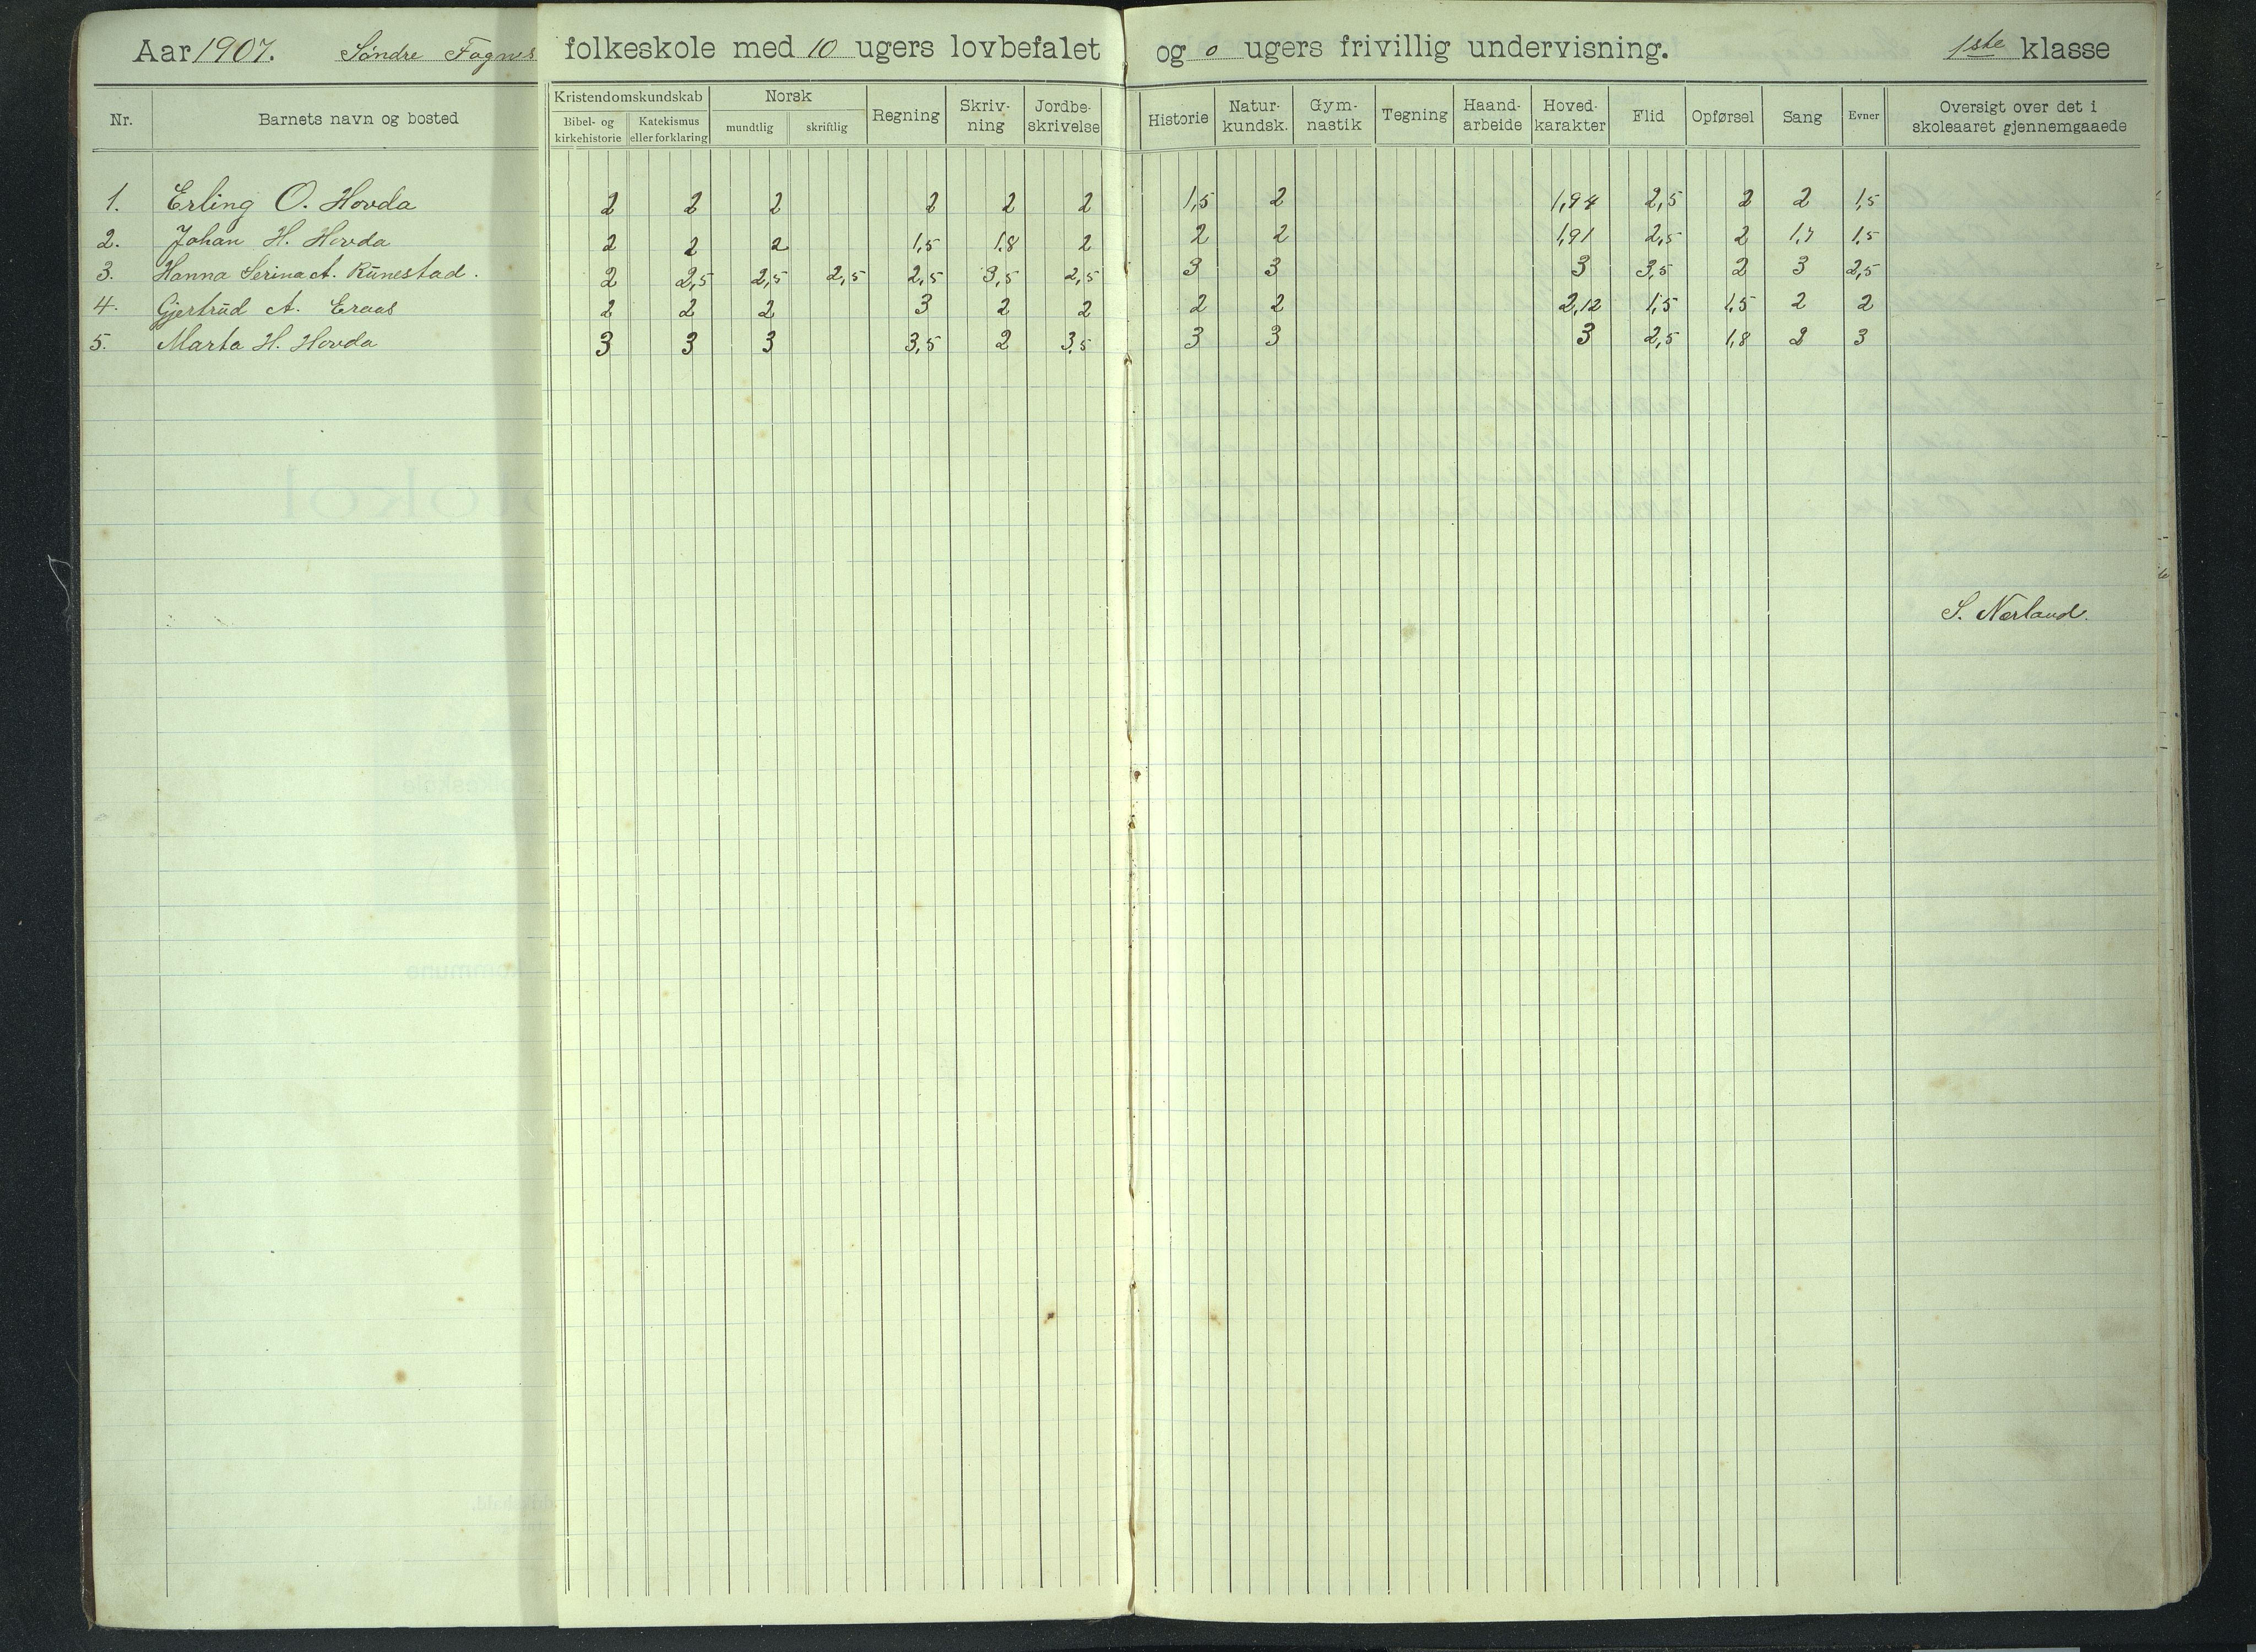 Aar 1907. Søndre Fognes folkeskole med 10 ugers lovbefalet og 0 ugers frivillig undervisning. 1ste klasse
Nr. Barnets navn og bosted Kristendomskundskab Bibel- og kirkehistorie Katekismus eller forklaring Norsk mundtlig skriftlig Regning Skriv-ning Jordbe-skrivelse Historie Natur-kundsk. Gym-nastik Tegning Haand-arbeide Hoved-karakter Flid Opførsel Sang Evner Oversigt over det i skoleaaret gjennemgaaede
1. Erling O. Hovda 2 2 2 2 2 2 1,5 2 1,94 2,5 2 2 1,5
2. Johan H. Hovda 2 2 2 1,5 1,8 2 2 2 1,91 2,5 2 1,7 1,5
3. Hanna Serina A. Runestad. 2 2,5 2,5 2,5 2,5 3,5 2,5 3 3 3 3,5 2 3 2,5
4. Gjertrud A. Eraas 2 2 2 3 2 2 2 2 2,12 1,5 1,5 2 2
5. Marta H. Hovda 3 3 3 3,5 2 3,5 3 3 3 2,5 1,8 2 3
S. Nærland.